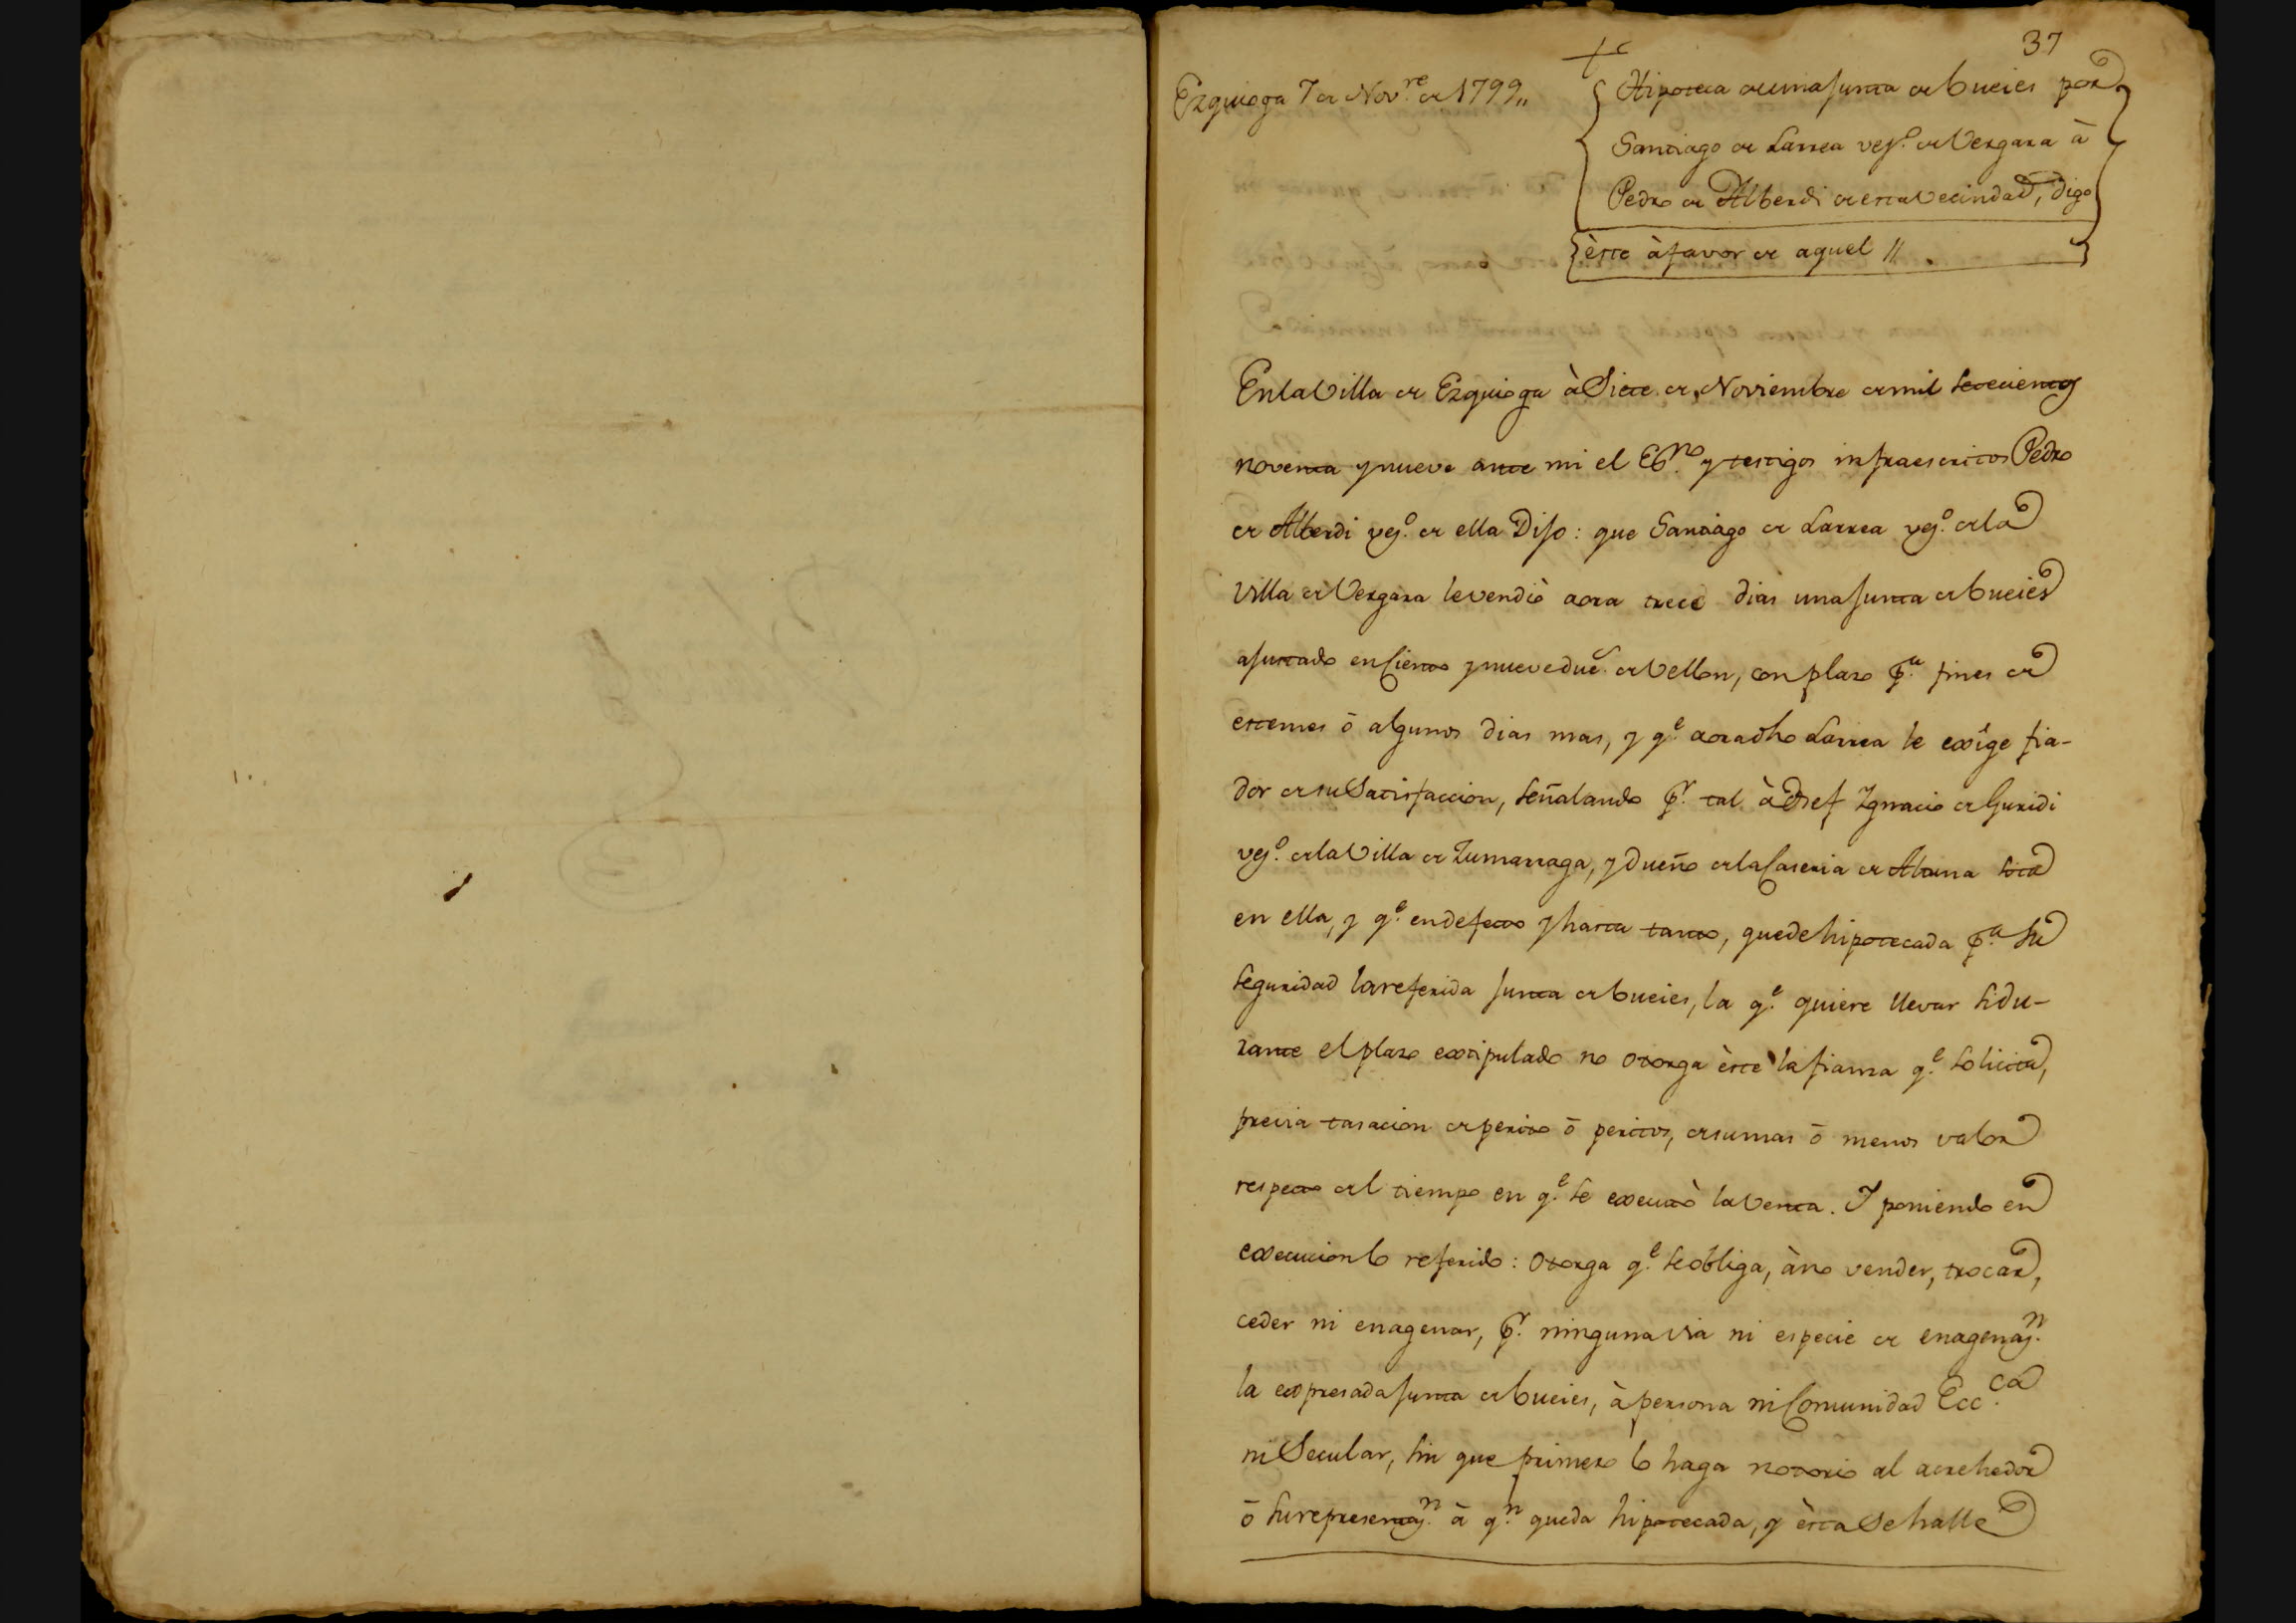 37
Ezquioga 7 de Nov.re de 1799,,
Hipoteca de una junta de bueies por
Santiago de Larrea vez.o de Vergara à
Pedro de Alberdi de esta vecindad, digo
èste à favor de aquel //
En la Villa de Ezquioga à Siete de Noviembre de mil setecientos
noventa y nueve ante mi el Es.no y testigos infraescritos Pedro
de Alberdi vez.o de ella Dijo: que Santiago de Larrea vez.o de la
Villa de Vergara le vendiò aora trece dias una junta de bueies
ajustado en ciento y nueve duc.s de Vellon, con plazo p.a fines de
este mes ò algunos dias mas, y q.e aora dho Larrea le exîge fia-
dor de su Satisfaccion, señalando p.r tal à Josef Ygnacio de Guridi
vez.o de la Villa de Zumarraga, y Dueño de la Caseria de Aluna sita
en ella, y q.e en defecto y hasta tanto, quede hipotecada p.a su
seguridad la referida junta de bueies, la q.e quiere llevar si du-
rante el plazo extipulado no otorga èste la fianza q.e solicita,
previa tasacion de perito ò peritos, de su mas ò menos valor
respecto del tiempo en q.e se executò la Venta. Y poniendo en
execucion lo referido: Otorga q.e se obliga, à no vender, trocar,
ceder ni enagenar, p.r ninguna via ni especie de enagenaz.n
la expresada junta de bueies, à persona ni Comunidad Ecc.ca
ni Secular, sin que primero lo haga notorio al acrehedor
ò su representaz.n à q.n queda hipotecada, y èsta se halle